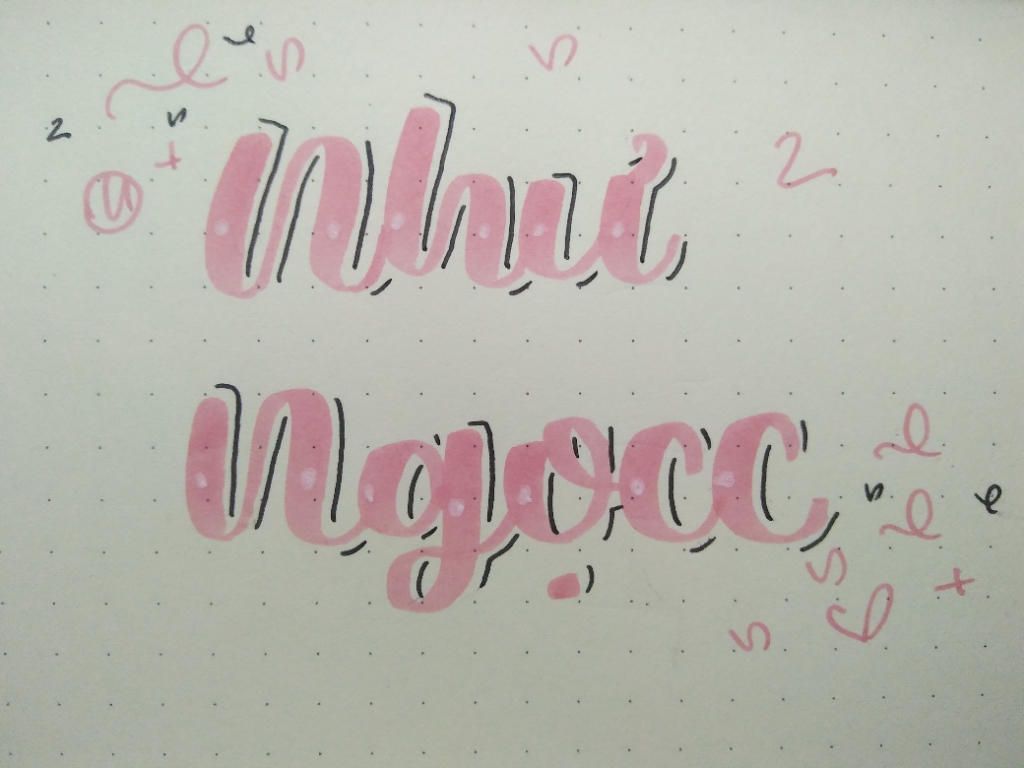 Như
Ngọcc